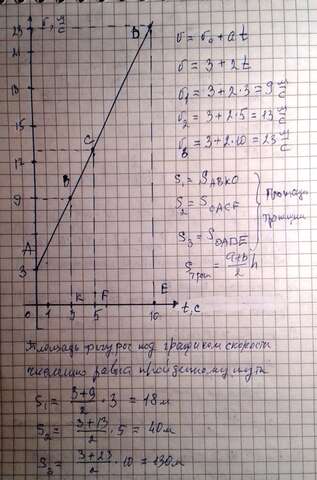 υ, м/с
23
21
18
15
12
9
3
A
B
C
D
K
F
E
0 1 3 5 10 t, c
υ = υ₀ + at
υ = 3 + 2t
υ₁ = 3 + 2·3 = 9 м/с
υ₂ = 3 + 2·5 = 13 м/с
υ₃ = 3 + 2·10 = 23 м/с
S₁ = S ABKO
S₂ = S OACF
S₃ = S OADE
Площади трапеции
S трап = (a+b)/2 h
Площадь фигуры под графиком скорости
численно равна пройденному пути
S₁ = (3+9)/2 · 3 = 18 м
S₂ = (3+13)/2 · 5 = 40 м
S₃ = (3+23)/2 · 10 = 130 м